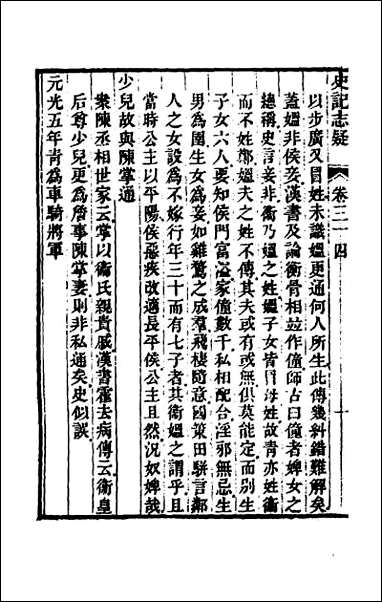 史記志疑 卷三十四
以步廣又冒姓未識媼更通何人所生此傳幾糾錯難解矣
蓋媼非侯妾漢書及論衡骨相並作僮師古曰僮者婢女之
總稱史言妾非衛乃媼之姓媼子女皆冒母姓故青亦姓衛
而不姓鄭媼夫之姓不傳其夫或有或無俱莫能定而別生
子女六人要知侯門富溢家僮數千私相配合淫邪無忌生
男為圉生女為妾如雞鶩之成羣飛棲隨意國策田駢言鄰
人之女設為不嫁行年三十而有七子者其衛媼之謂乎且
當時公主以平陽侯惡疾改適長平侯公主且然況奴婢哉
少兒故與陳掌通
案陳丞相世家云掌以衛氏親貴戚漢書霍去病傳云衛皇
后尊少兒更為詹事陳掌妻則非私通矣史似誤
元光五年青為車騎將軍